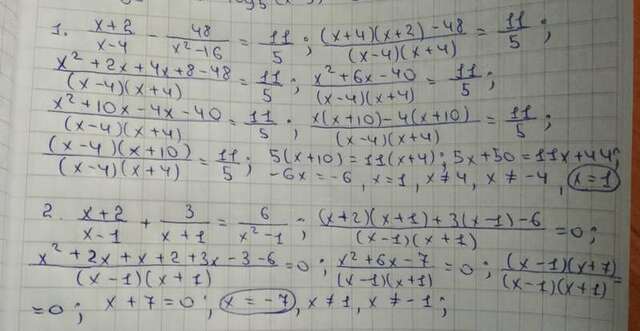 1. (x+2)/(x-4) - 48/(x²-16) = 11/5; ((x+4)(x+2)-48)/((x-4)(x+4)) = 11/5;
(x²+2x+4x+8-48)/((x-4)(x+4)) = 11/5; (x²+6x-40)/((x-4)(x+4)) = 11/5;
(x²+10x-4x-40)/((x-4)(x+4)) = 11/5; (x(x+10)-4(x+10))/((x-4)(x+4)) = 11/5;
((x-4)(x+10))/((x-4)(x+4)) = 11/5; 5(x+10)=11(x+4); 5x+50=11x+44;
-6x=-6, x=1, x≠4, x≠-4, x=1
2. (x+2)/(x-1) + 3/(x+1) = 6/(x²-1); ((x+2)(x+1)+3(x-1)-6)/((x-1)(x+1)) = 0;
(x²+2x+x+2+3x-3-6)/((x-1)(x+1)) = 0; (x²+6x-7)/((x-1)(x+1)) = 0; ((x-1)(x+7))/((x-1)(x+1)) =
= 0; x+7=0; x=-7, x≠1, x≠-1;